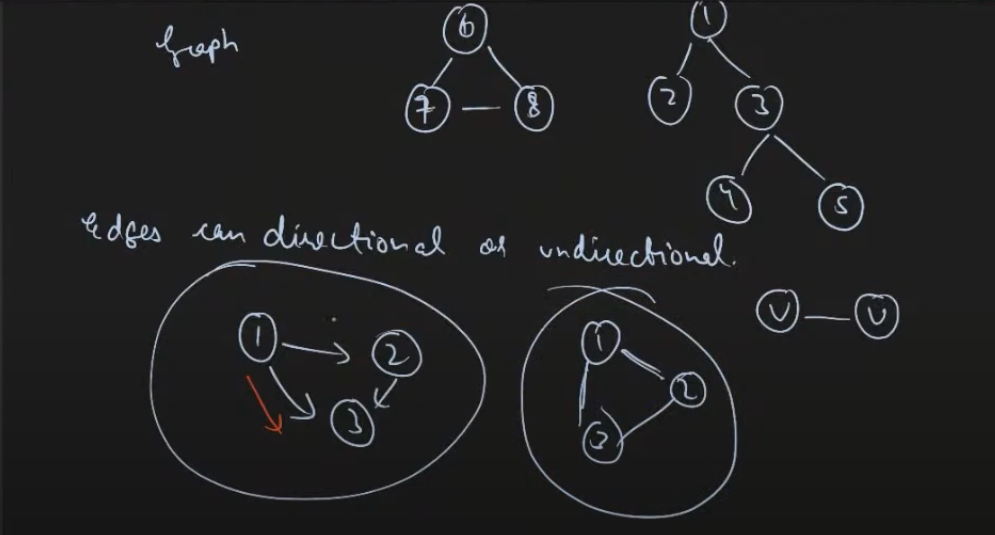 Graph
6
7 8
1
2 3
4 5
Edges can directional or undirectional.
1 2
3
1
2
3
U U